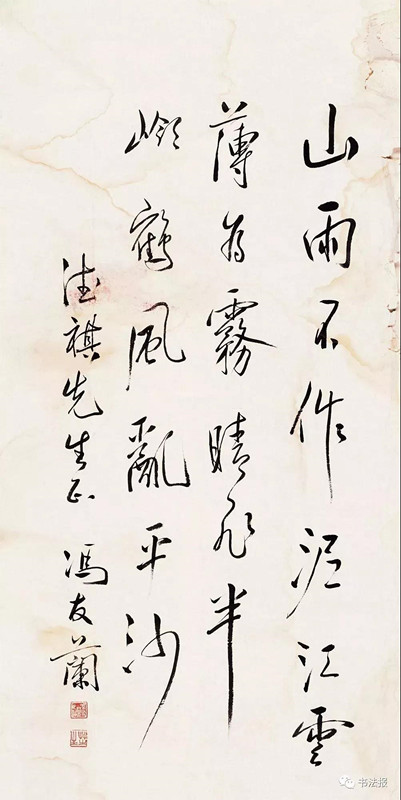 山雨不作泥江雲
薄為霧晴飛半
嶺鶴風亂平沙
德祺先生正 馮友蘭
书法报